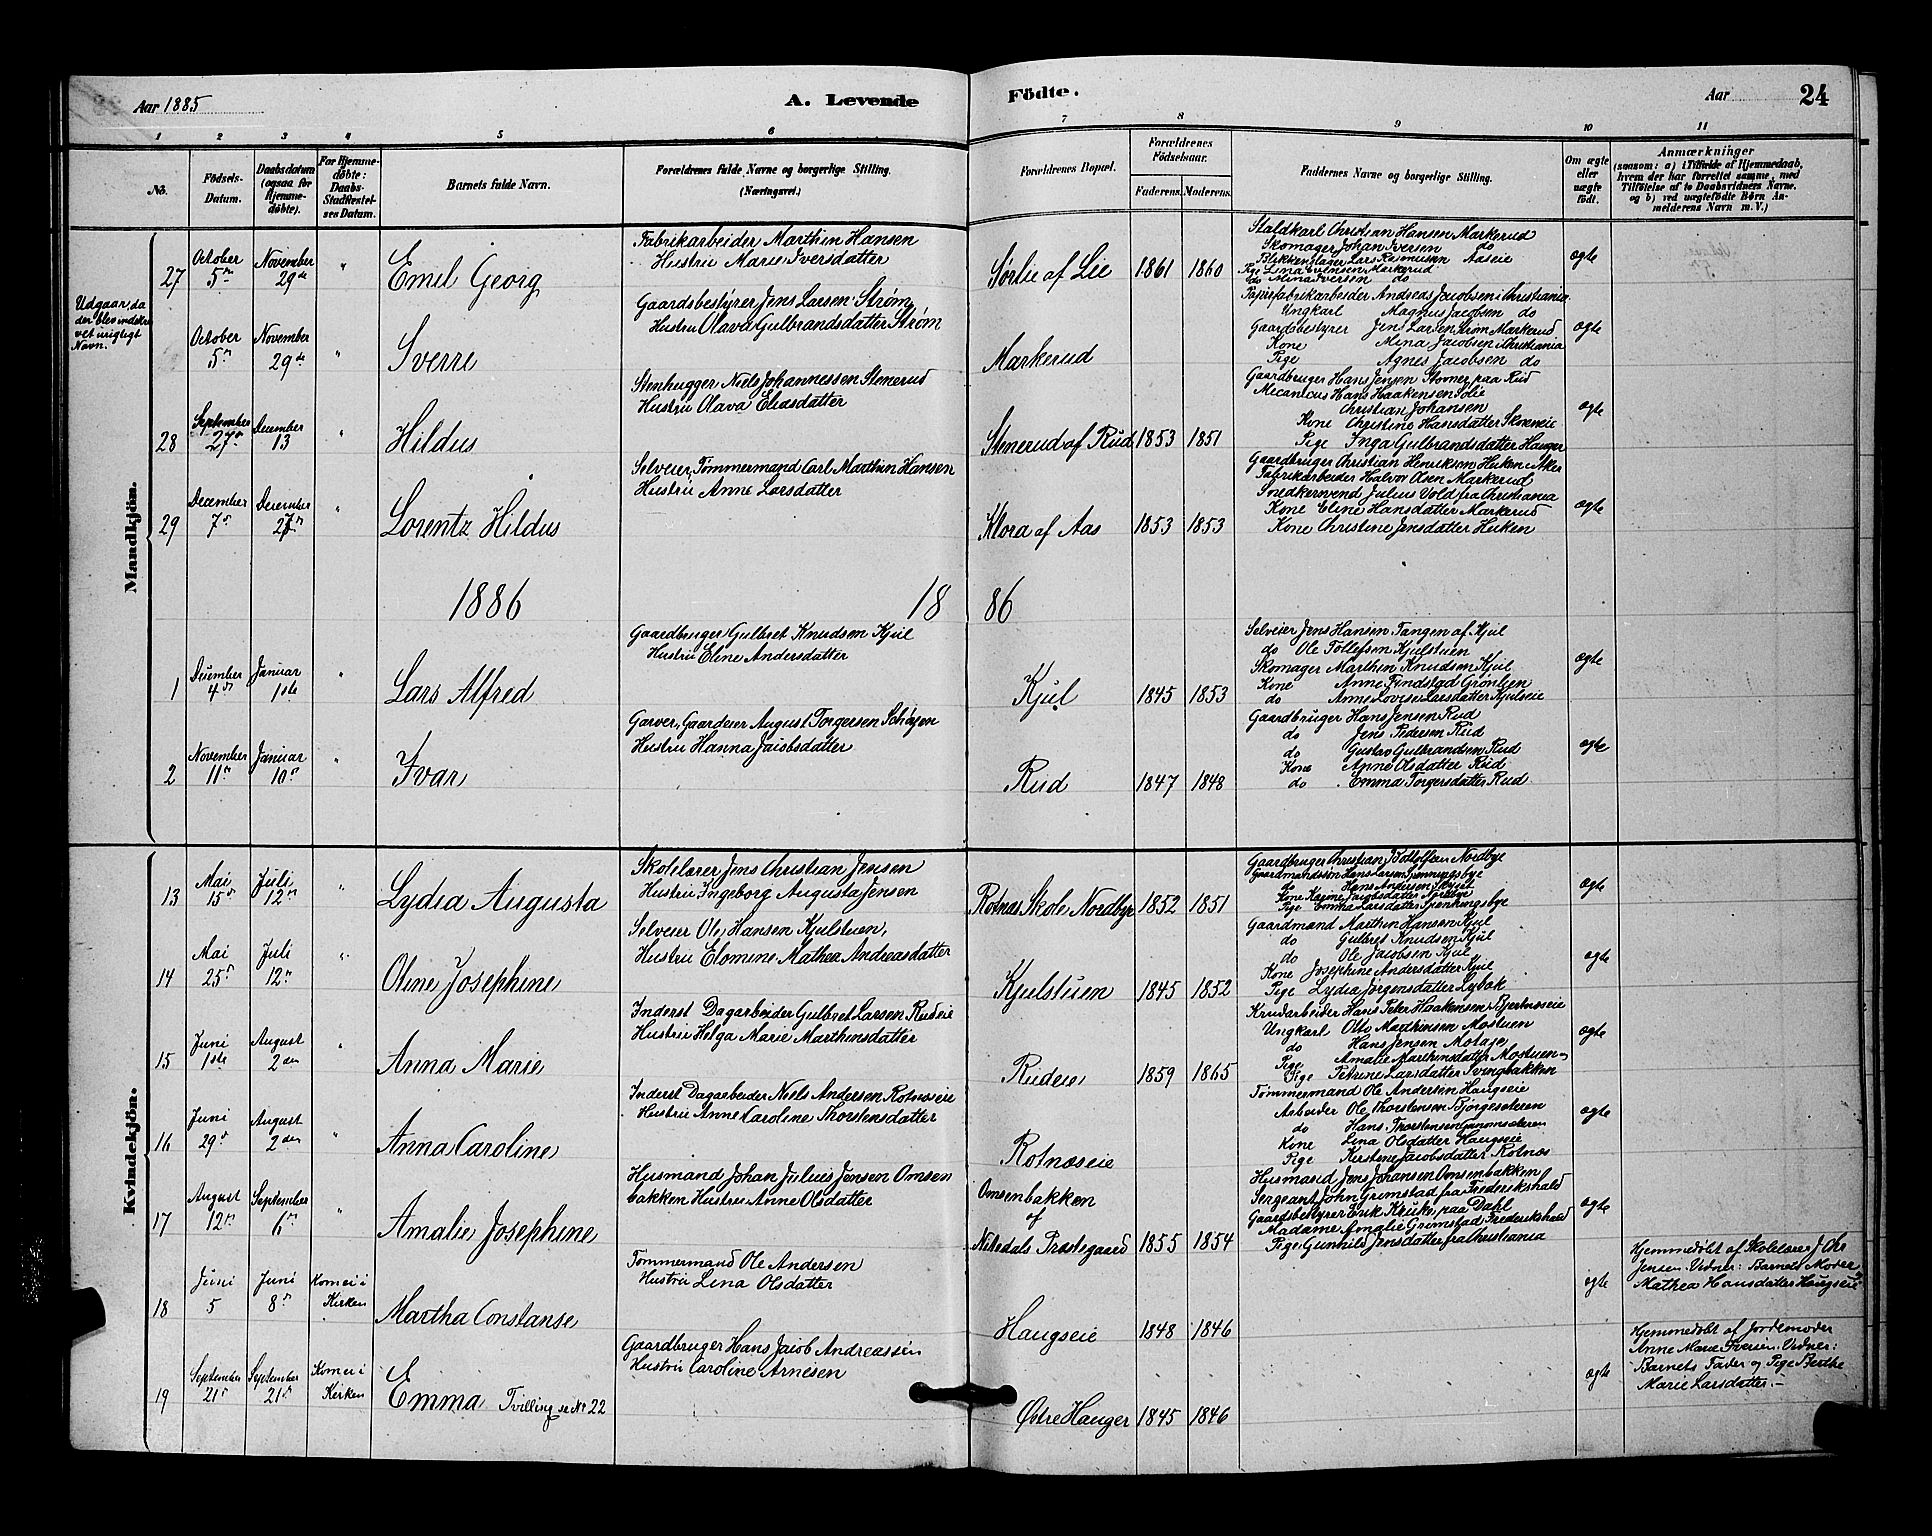 Aar 1885
A. Levende
Födte.
Aar
24
1 2 3 4 5 6 7 8 9 10 11
No.
Födsels-Datum.
Daabsdatum (ogsaa for Hjemmedöbte).
For Hjemmedöbte: Daabs-Stadfæstelses Datum.
Barnets fulde Navn.
Forældrenes fulde Navne og borgerlige Stilling. (Næringsvei.)
Forældrenes Bopæl.
Forældrenes Födselsaar.
Faderens. Moderens.
Faddernes Navne og borgerlige Stilling.
Om ægte eller uægte födt.
Anmærkninger
(saasom: a) i Tilfælde af Hjemmedaab, hvem der har forrettet samme, med Tilföielse af to Daabsvidners Navne, og b) ved uægtefödte Börn Anmelderens Navn m. V.)
Mandkjön.
27
October 5
November 29de
"
Emil Georg
Fabrikarbeider Marthin Hansen
Hustru Marie Iversdatter
Sørlie af Lie
1861
1860
Staldkarl Christian Hansen Markerud
Skomager Johan Iversen do
Blikkenslager Lars Rasmusen Aaseie
Pige Lina Evensen Markerud
do Mina Iversen do
ægte
Udgaar, da
der blev indskre
vet urigtigt
Navn.
October 5
November 29de
"
Sverre
Gaardsbestyrer Jens Larsen Strøm
Hustru Olava Gulbrandsdatter Strøm
Markerud
Papirfabrikarbeider Andreas Jacobsen i Christiania
Ungkarl Magnus Jacobsen do
Gaardsbestyrer Jens Larsen Strøm Markerud
Kone Mina Jacobsen i Christiania
Pige Agnes Jacobsen do
ægte
28
September 27
December 13
"
Hildus
Stenhugger Niels Johannessen Stenerud
Hustru Olava Eliasdatter
Stenerud af Rud
1853
1851
Gaardbruger Hans Jensen Stovner paa Rud
Mecanicus Hans Haakensen Solie
Christian Johansen
Kone Christine Hansdatter
Pige Inga Gulbrandsdatter Hauger
ægte
29
December 7
December 27
"
Lorentz Hildus
Selveier, Tømmermand Carl Marthin Hansen
Hustru Anne Larsdatter
Klora af Aas
1853
1853
Gaardbruger Christian Henriksen Huken i Aker
Fabrikarbeider Halvor Olsen Markerud
Snedkersvend Julius Vold fra Christiania
Kone Eline Hansdatter Markerud
Kone Christine Jensdatter Huken
ægte
1886
18 86
1
December 4
Januar 1ste
"
Lars Alfred
Gaardbruger Gulbret Knudsen Kjul
Hustru Eline Andersdatter
Kjul
1845
1853
Selveier Jens Hansen Tangen af Kjul
do Ole Tollefsen Kjulstuen
Skomager Marthin Knudsen Kjul
Kone Anne Findstad Grønlien
do Anne Lovise Larsdatter Kjulseie
ægte
2
November 11
Januar 10
"
Ivar
Garver, Gaardeier August Torgersen Schøyen
Hustru Hanna Jacobsdatter
Rud
1847
1848
Gaardbruger Hans Jensen Rud
do Jens Pedersen Rud
do Gustav Gulbrandsen Rud
Kone Anne Olsdatter Rud
do Emma Torgersdatter Rud
ægte
Kvindekjön.
13
Mai 15
Juli 12
"
Lydia Augusta
Skolelærer Jens Christian Jensen
Hustru Ingeborg Augusta Jensen
Rotnæs Skole Nordbye
1852
1851
Gaardbruger Christian Bottolfsen Nordbye
Gaardmandssøn Hans Larsen Spenningsbye
do Hans Andersen Skyset
Kone Karine Jacobsdatter Nordbye
Pige Emma Larsdatter Spenningsbye
ægte
14
Mai 25
Juli 12
"
Oline Josephine
Selveier Ole Hansen Kjulstuen,
Hustru Elomine Mathea Andreasdatter
Kjulstuen
1845
1852
Gaardmand Marthin Hansen Kjul
do Gulbret Knudsen Kjul
do Ole Jacobsen Kjul
Kone Josephine Andersdatter Kjul
Pige Lydia Jørgensdatter Lybæk
ægte
15
Juni 1ste
August 2den
"
Anna Marie
Inderst Dagarbeider Gulbret Larsen Rudeie
Hustru Helga Marie Marthinsdatter
Rudeie
1859
1865
Krudarbeider Hans Peter Haakensen Bjertnæseie
Ungkarl Otto Marthinsen Mostuen
do Hans Jensen
Pige Amalie Marthinsdatter Mostuen
Pige Petrine Larsdatter Svingbakken
ægte
16
Juni 29
August 2den
"
Anna Caroline
Inderst Dagarbeider Niels Andersen Rotnæseie
Hustru Anne Caroline Thorstensdatter
Rotnæseie
Tømmermand Ole Andersen Haugseie
Arbeider Ole Thorstensen Bjørgesæteren
do Hans Thorstensen
Kone Lina Olsdatter Haugseie
Pige Kirstene Jacobsdatter Rotnæs
ægte
17
August 12
September 6
"
Amalie Josephine
Husmand Johan Julius Jensen Omsen
bakken Hustru Anne Olsdatter
Omsenbakken
af
Nitedals Præstegaard
1855
1854
Husmand Jens Johansen Omsenbakken
Sergeant John Grimstad fra Frederikshald
Gaardsbestyrer Erik Kruke, paa Dahl
Madame Amalie Grimstad, Frederikshald
Pige Gunhild Jensdatter fra Christiania
ægte
18
Juni 5
Juni 8
Kom ei i Kirken
Martha Constanse
Tømmermand Ole Andersen
Hustru Lina Olsdatter
Haugseie
1848
1846
ægte
Hjemmedøbt af Skolelærer J. Chr
Jensen. Vidner: Barnets Moder og
Mathea Hansdatter Haugseie
19
September 21
September 21
Kom ei i Kirken
Emma Tvilling se No 22
Gaardbruger Hans Jacob Andreassen
Hustru Caroline Arnesen
Østre Hauger
1845
1846
ægte
Hjemmedøbt af Jordemoder
Anne Marie Iversen. Vidner:
Barnets Fader og Pige Berthe
Marie Larsdatter.